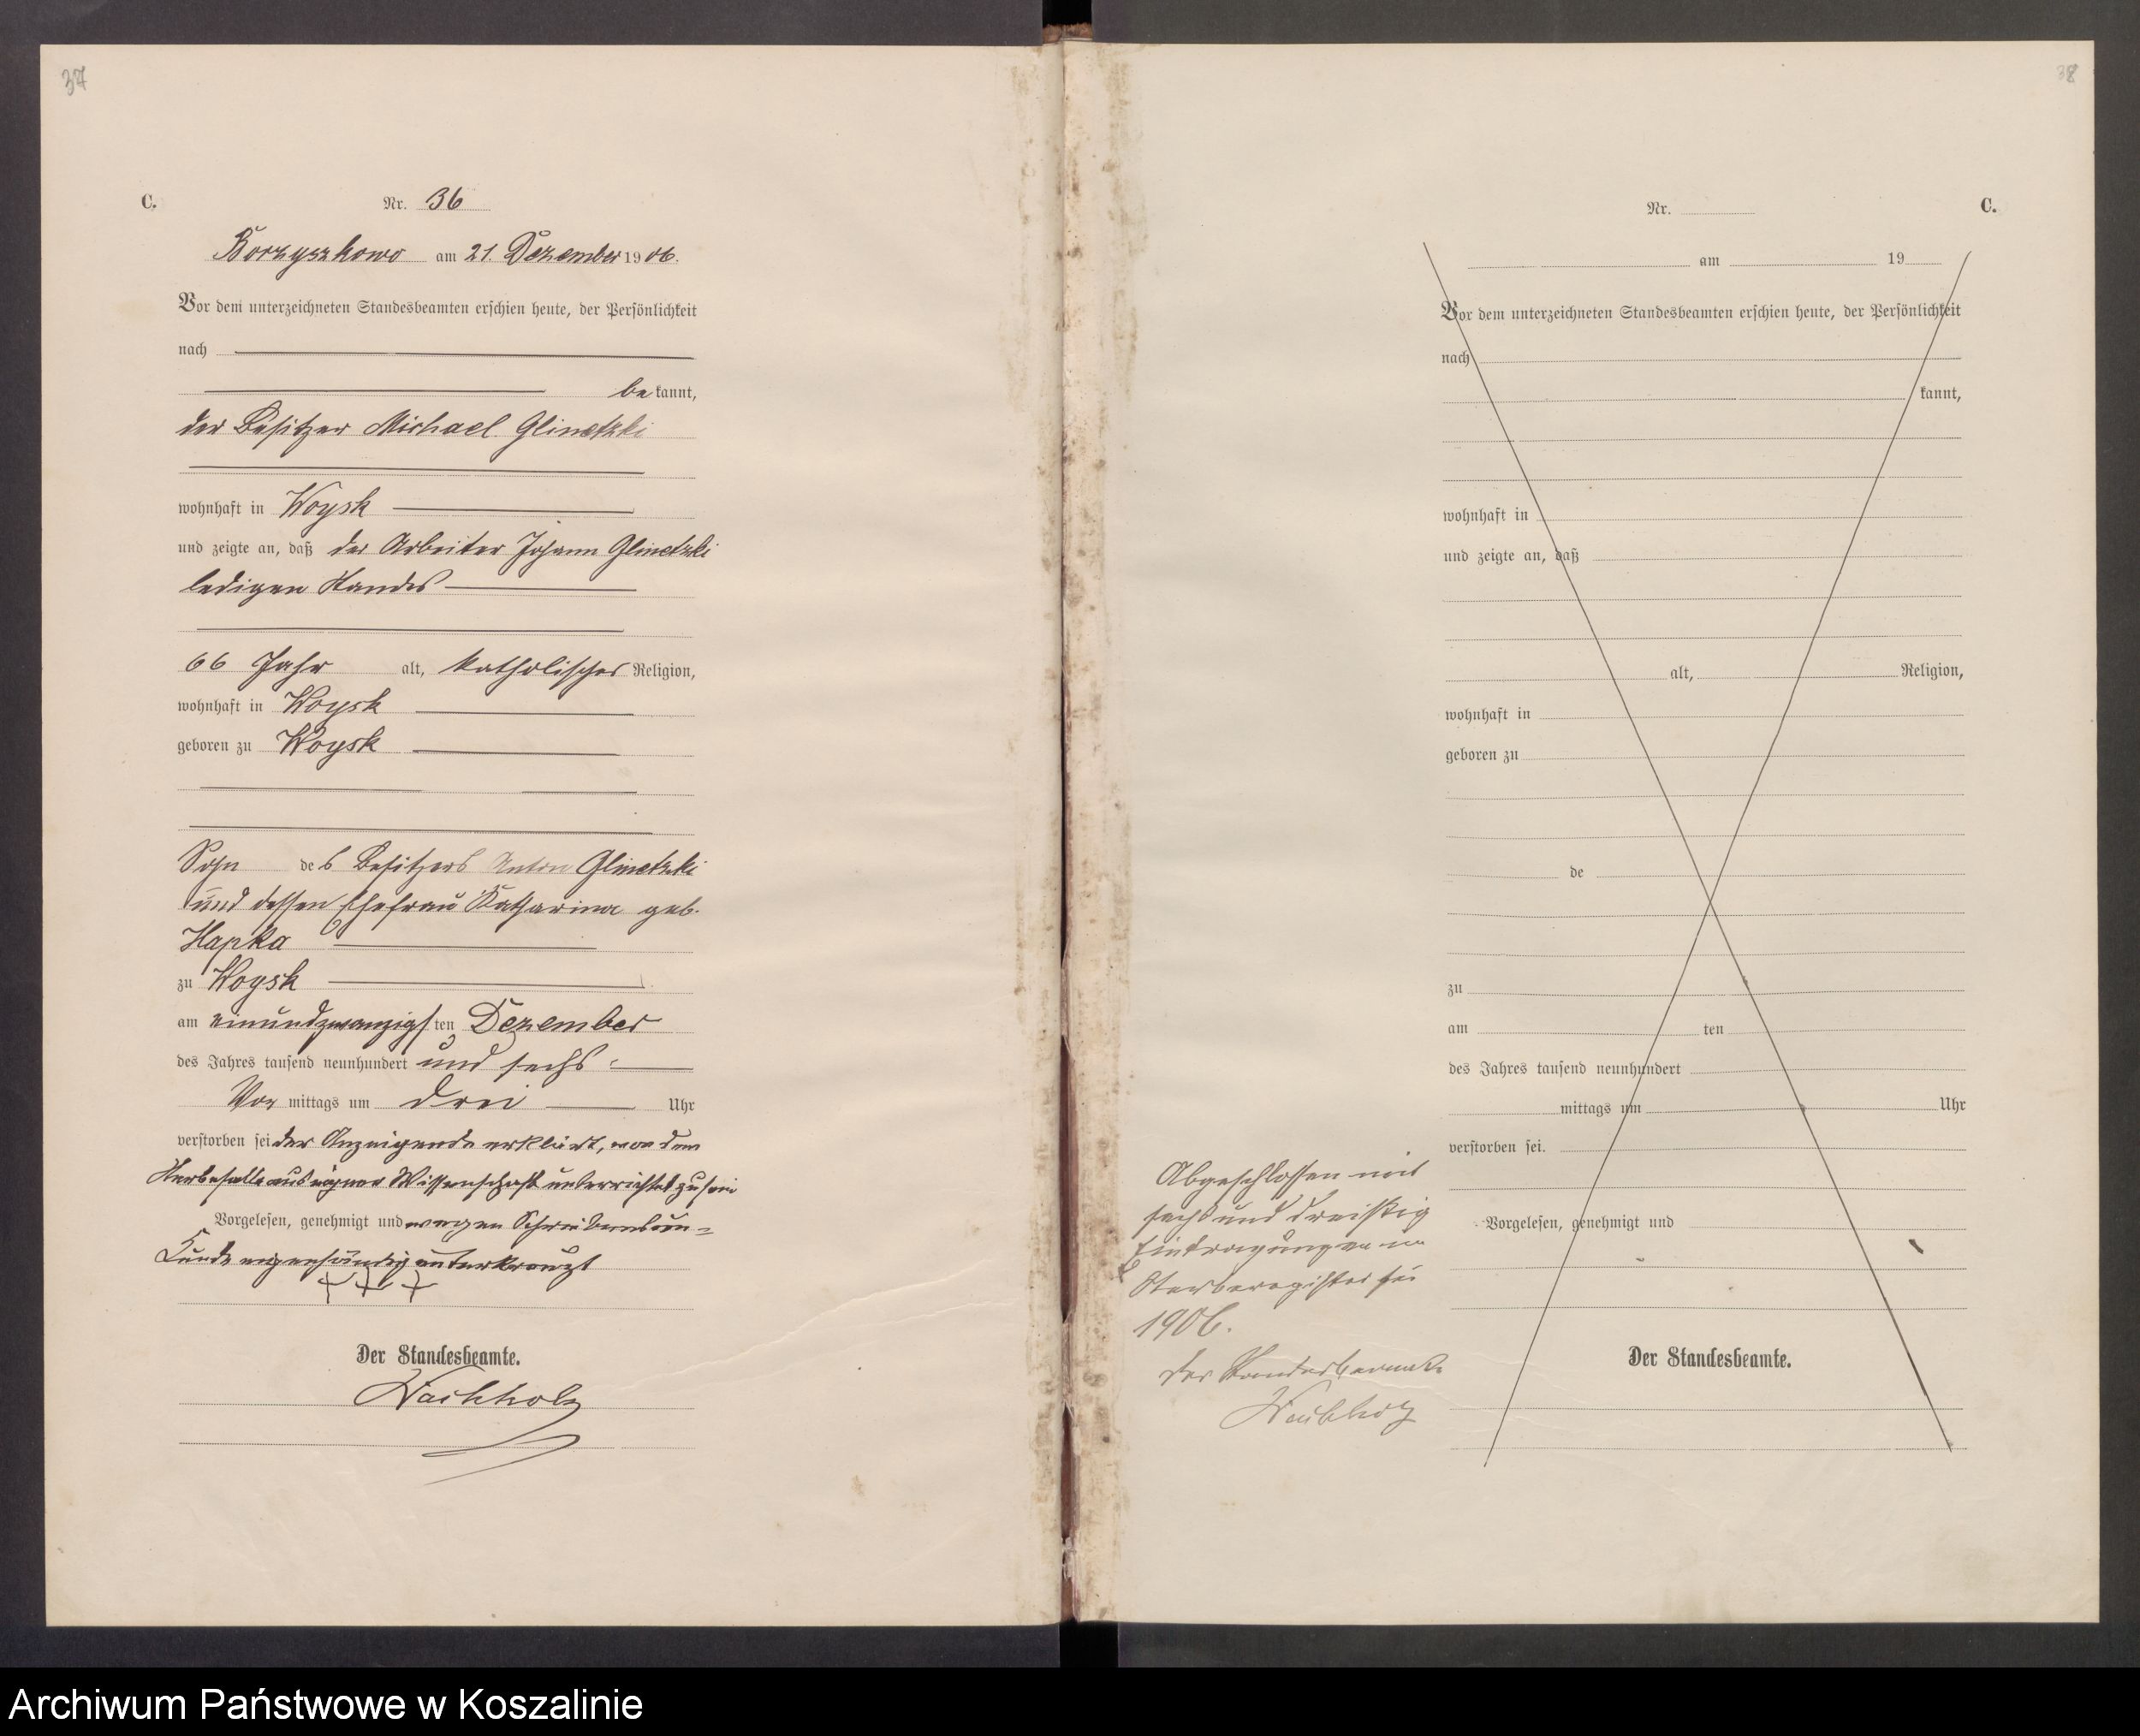 37
C.
Nr. 36
Borzyszkowo am 21. Dezember 1906.
Vor dem unterzeichneten Standesbeamten erschien heute, der Persönlichkeit
nach
bekannt,
der Besitzer Michael Glinetzki
wohnhaft in Woysk
und zeigte an, daß der Arbeiter Johann Glinetzki
ledigen Standes
66 Jahr alt, katholischer Religion,
wohnhaft in Woysk
geboren zu Woysk
Sohn des Besitzers Anton Glinetzki
und dessen Ehefrau Katharina geb.
Hapka
zu Woysk
am einundzwanzigsten Dezember
des Jahres tausend neunhundert und sechs
Vormittags um drei Uhr
verstorben sei der Anzeigende erklärt, von dem
Sterbefalle aus eigner Wissenschaft unterrichtet zu sein
Vorgelesen, genehmigt und wegen Schreibensun=
kunde eigenhändig unterkreuzt
+ + +
Der Standesbeamte.
Wachholz
38
Nr.
C.
am 19
Vor dem unterzeichneten Standesbeamten erschien heute, der Persönlichkeit
nach
kannt,
wohnhaft in
und zeigte an, daß
alt, Religion,
wohnhaft in
geboren zu
de
zu
am ten
des Jahres tausend neunhundert
mittags um Uhr
verstorben sei.
Vorgelesen, genehmigt und
Der Standesbeamte.
Abgeschlossen mit
sechs und dreißig
Eintragungen im
Sterberegister für
1906.
Der Standesbeamte
Wachholz
Archiwum Państwowe w Koszalinie